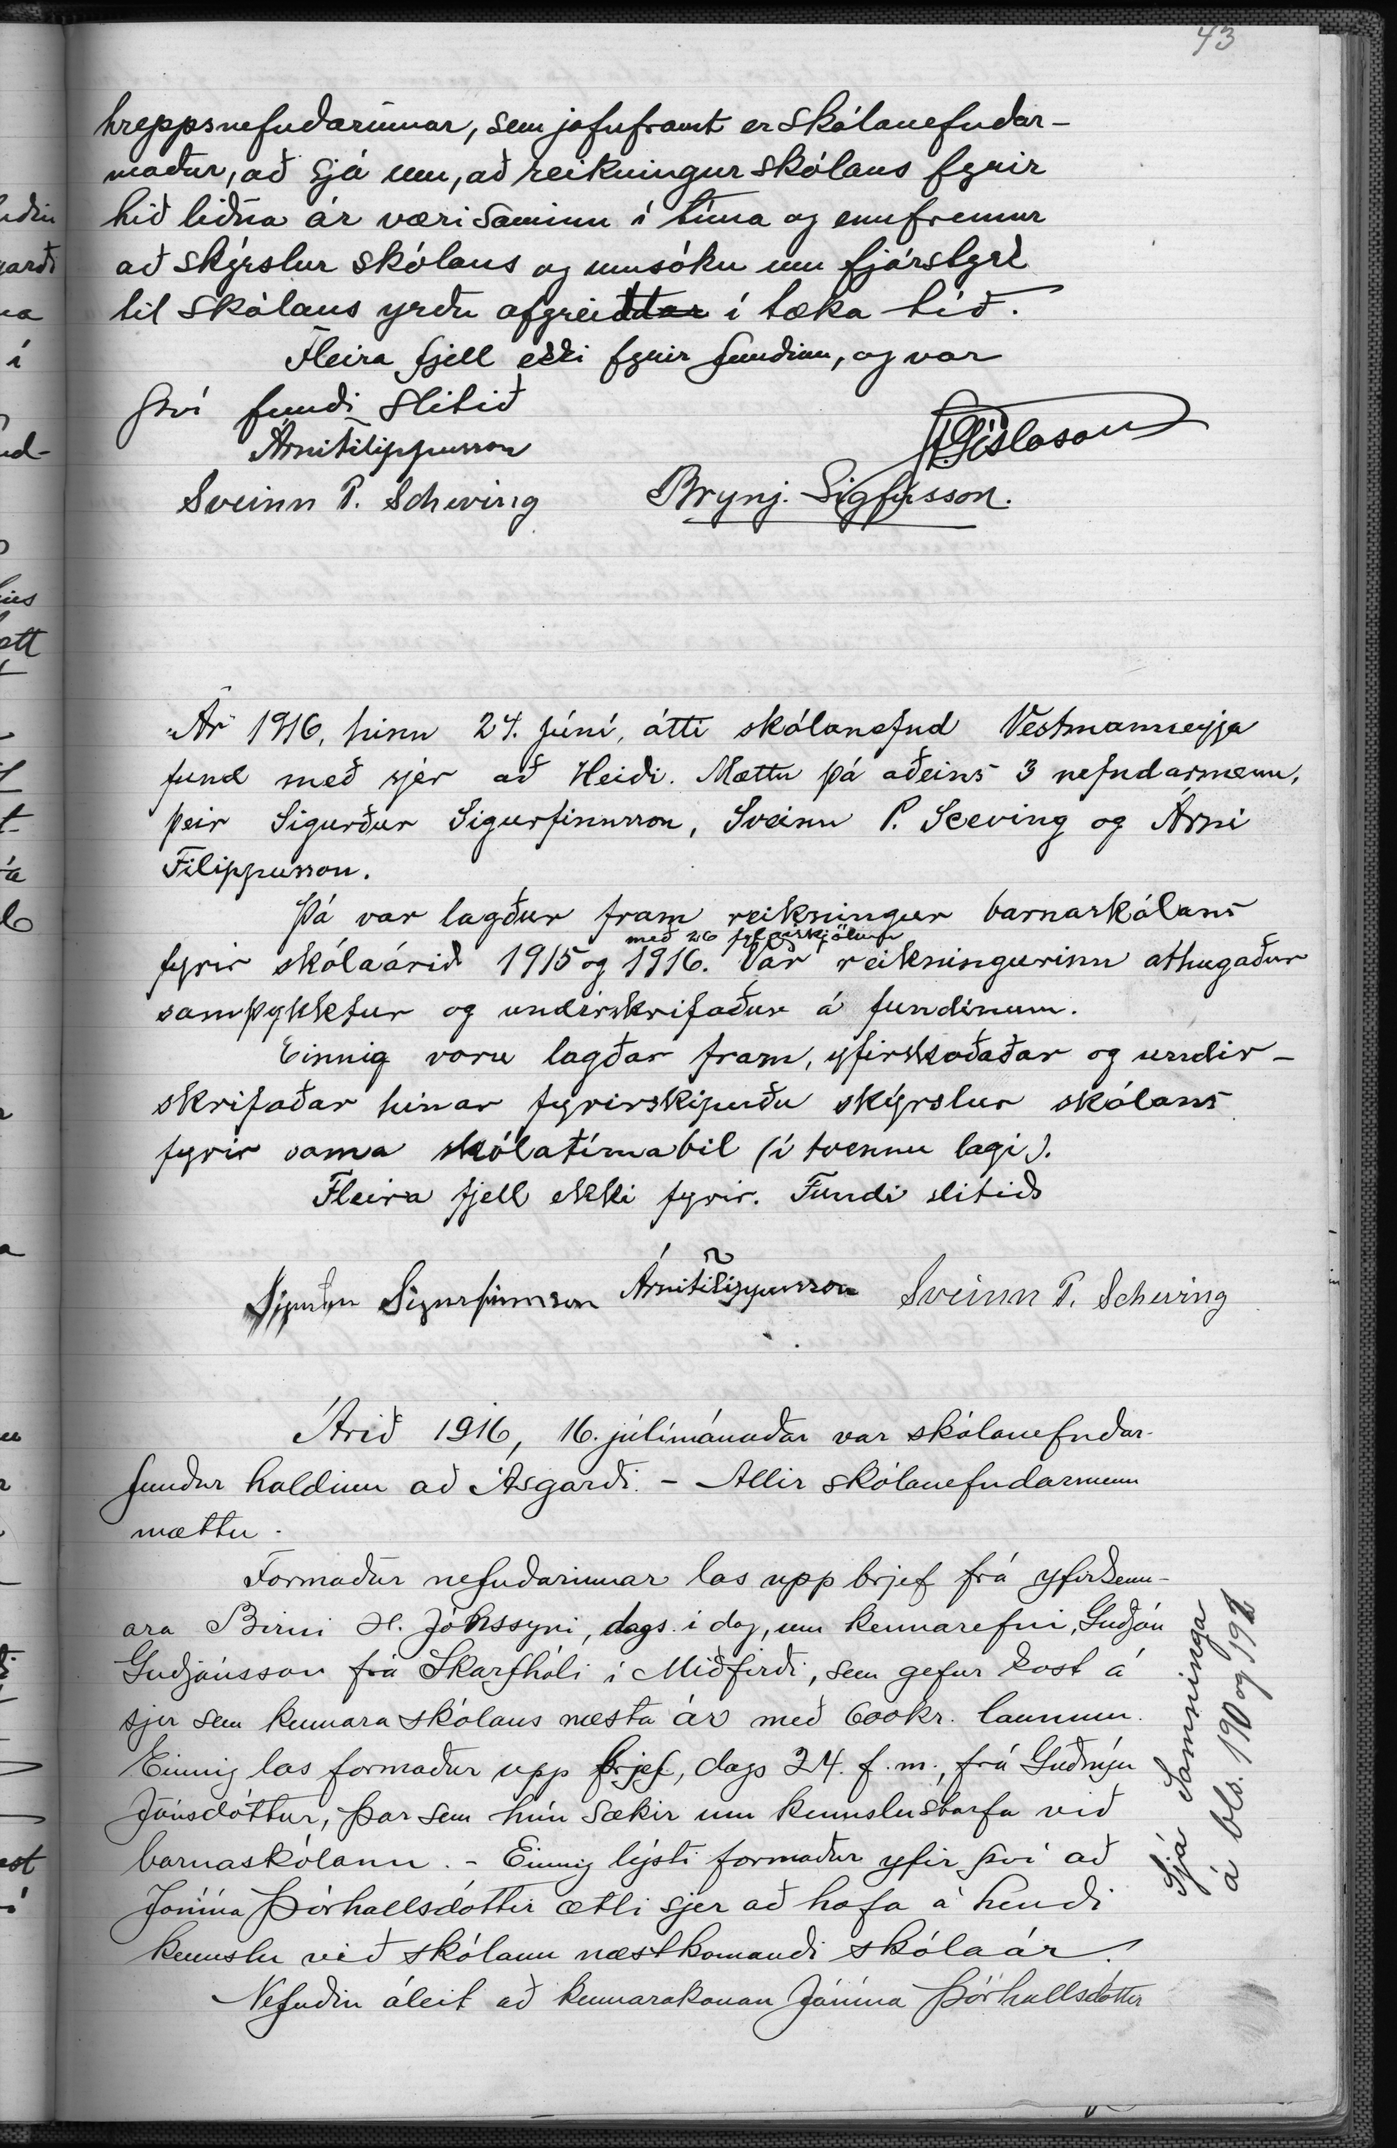 43
hreppsnefndarinnar, sem jafnframt er skólanefndar-
maður, að sjá um, að reikningur skólans fyrir
hið liðna ár væri saminn í tíma og ennfremur
að skýrslur skólans og umsókn um fjárstyrk
til skólans yrðu afgreiddar í tæka tíð.
Fleira fjell ekki fyrir fundinn, og var
því fundi slitið
Árni Filippusson
Gíslason
Sveinn P. Scheving
Brynj. Sigfússon.
Ár 1916, hinn 24. júní, átti skólanefnd Vestmanneyja
fund með sjer að Heiði. Mættu þá aðeins 3 nefndarmenn,
þeir Sigurður Sigurfinnsson, Sveinn P. Sceving og Árni
Filippusson.
Þá var lagður fram reikningur barnaskólans
með 26 fylgiskjölum
fyrir skólaárið 1915 og 1916. Var reikningurinn athugaður
samþykktur og undirskrifaður á fundinum.
Einnig voru lagðar fram, yfirskoðaðar og undir-
skrifaðar hinar fyrirskipuðu skýrslur skólans
fyrir sama skólatímabil (í tvennu lagi).
Fleira fjell ekki fyrir. Fundi slitið
Sigurður Sigurfinnsson Árni Filippusson Sveinn P. Scheving
Árið 1916, 16. júlímánaðar var skólanefndar-
fundur haldinn að Ásgarði. - Allir skólanefndarmenn
mættu.
Formaður nefndarinnar las upp brjef frá yfirkenn-
ara Birni H. Jónssyni, dags. í dag, um kennarefni, Guðjón
Guðjónsson frá Skarfhóli í Miðfirði, sem gefur kost á
sjer sem kennara skólans næsta ár með 600 kr. launum.
Einnig las formaður upp brjef, dags 24. f. m., frá Guðnýju
Jónsdóttur, þar sem hún sækir um kennslustarfa við
barnaskólann. - Einnig lýsti formaður yfir því að
Jónína Þórhallsdóttir ætli sjer að hafa á hendi
kennslu við skólann næstkomandi skólaár.
Nefndin áleit að kennarakonan Jónína Þórhallsdóttir
Sjá Samninga
á bls. 190 og 192